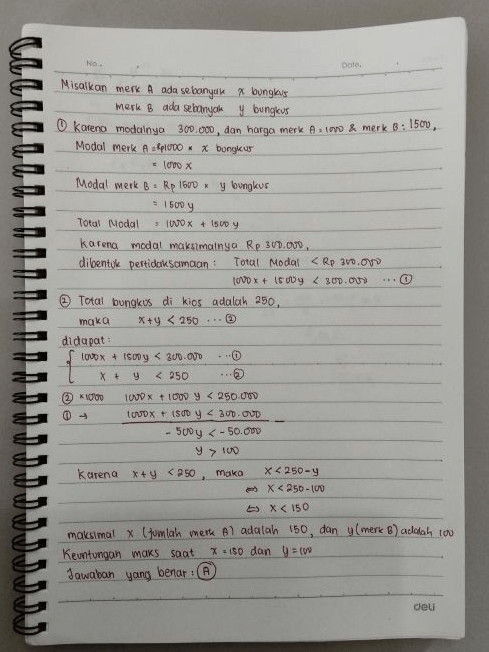 No.. Date.
Misalkan merk A ada sebanyak x bungkus
merk B ada sebanyak y bungkus
① Karena modalnya 300.000, dan harga merk A = 1000 & merk B : 1500,
Modal merk A = Rp1000 × x bungkus
= 1000 x
Modal merk B = Rp 1500 × y bungkus
= 1500 y
Total Modal = 1000 x + 1500 y
Karena modal maksimalnya Rp 300.000,
dibentuk pertidaksamaan : Total Modal < Rp 300.000
1000 x + 1500 y < 300.000 ... ①
② Total bungkus di kios adalah 250,
maka x + y < 250 ... ②
didapat :
{ 1000 x + 1500 y < 300.000 ... ①
x + y < 250 ... ②
② ×1000 1000 x + 1000 y < 250.000
① → 1000 x + 1500 y < 300.000 −
- 500 y < - 50.000
y > 100
Karena x + y < 250, maka x < 250 - y
⇔ x < 250 - 100
⇔ x < 150
maksimal x (jumlah merk A) adalah 150, dan y (merk B) adalah 100
Keuntungan maks saat x = 150 dan y = 100
Jawaban yang benar : Ⓐ
deli